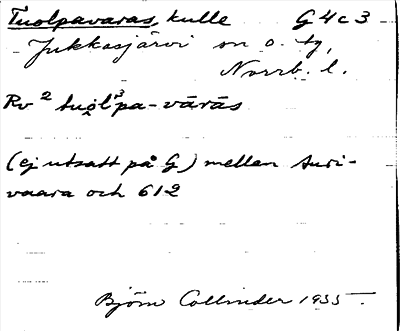 Tuolpavaras, kulle G 4 c 3
Jukkasjärvi sn o. tg,
Norrb. l.
Rv 2 tuo̭l³pa-vārās
(ej utsatt på G) mellan Auri-
vaara och 612
Björn Collinder 1935.